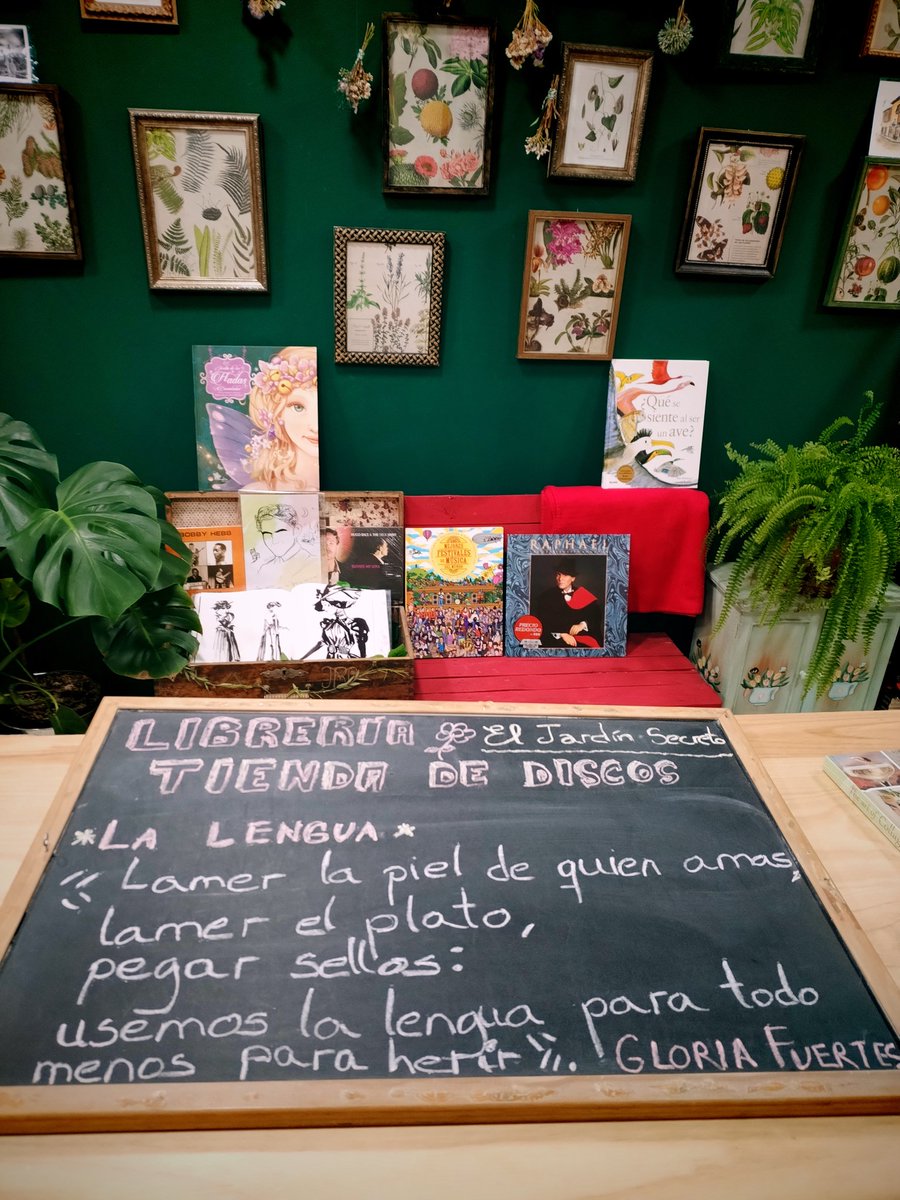 Hadas
¿Qué se
siente al ser
un ave?
BOBBY HEBB
FESTIVALES
DE MÚSICA
RAPHAEL
PRECIO
REDONDO
LIBRERÍA El Jardín Secreto
TIENDA DE DISCOS
*LA LENGUA*
"Lamer la piel de quien amas,
lamer el plato,
pegar sellos:
usemos la lengua para todo
menos para herir". GLORIA FUERTES